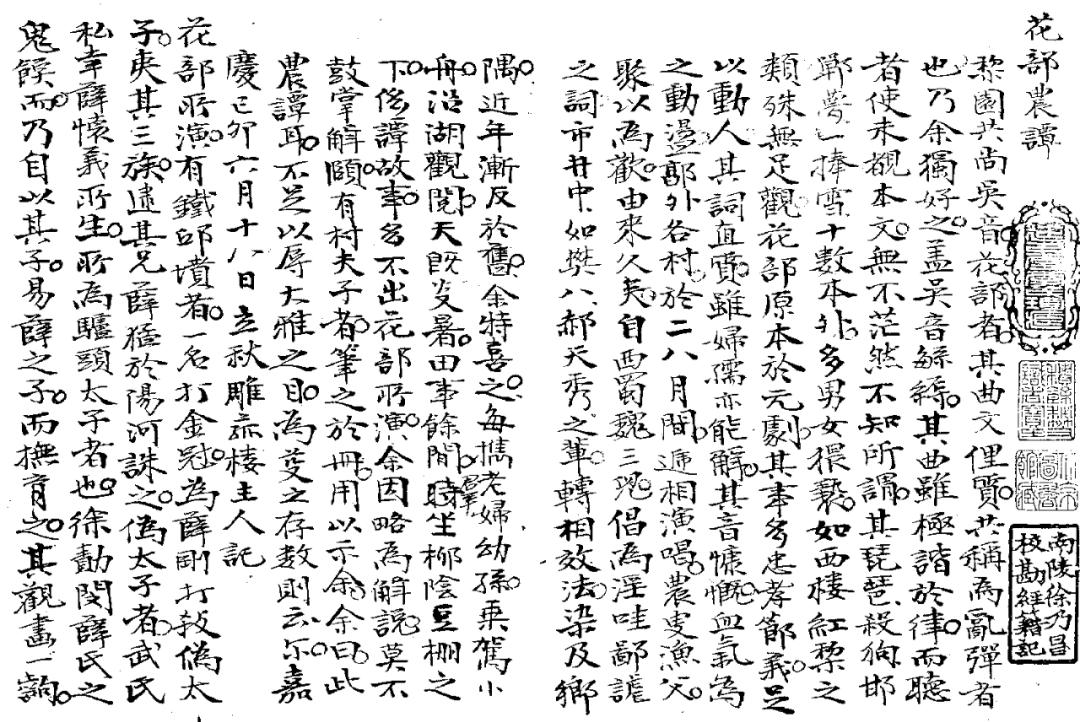 花部農譚
梨園共尚吳音花部者其曲文俚質共稱為亂彈者
也乃余獨好之盖吳音繁縟其曲雖極諧於律而聽
者使未覩本文無不茫然不知所謂其琵琶殺狗邯
鄲夢一捧雪十數本外多男女猥褻如西樓紅棃之
類殊無足觀花部原本於元劇其事多忠孝節義足
以動人其詞直質雖婦孺亦能解其音慷慨血氣為
之動盪郭外各村於二八月間遞相演唱農叟漁父
聚以為歡由來久矣自西蜀魏三兒倡為淫哇鄙謔
之詞市井中如樊八郝天秀之輩轉相效法染及鄉
隅近年漸反於舊余特喜之每擕老婦幼孫乘駕小
舟沿湖觀閱天既炎暑田事餘閒群坐柳陰豆棚之
下侈譚故事多不出花部所演余因略為解說莫不
鼓掌解頤有村夫子者筆之於冊用以示余余曰此
農譚耳不足以辱大雅之目為芟之存數則云尔嘉
慶己卯六月十八日立秋雕菰樓主人記
花部所演有鐵邱墳者一名打金冠為薛剛打殺偽太
子夷其三族逮其兄薛猛於陽河誅之偽太子者武氏
私幸薛懷義所生所為驢頭太子者也徐勣閔薛氏之
鬼餒而乃自以其子易薛之子而撫育之其觀畫一齣
南陵徐乃昌
校勘經籍記